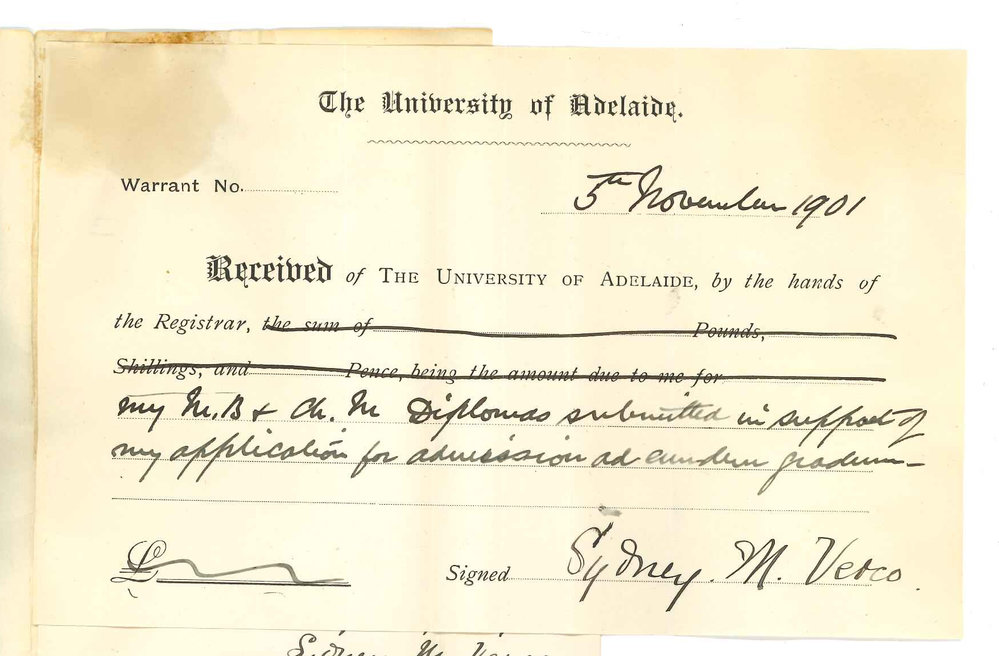 The University of Adelaide.
Warrant No.
5th November 1901
Received of THE UNIVERSITY OF ADELAIDE, by the hands of
the Registrar, the sum of Pounds,
Shillings, and Pence, being the amount due to me for
my M.B & Ch. M Diplomas submitted in support of
my application for admission ad eundem gradum—
£
Signed Sydney. M. Verco.
Sidney M. Verco